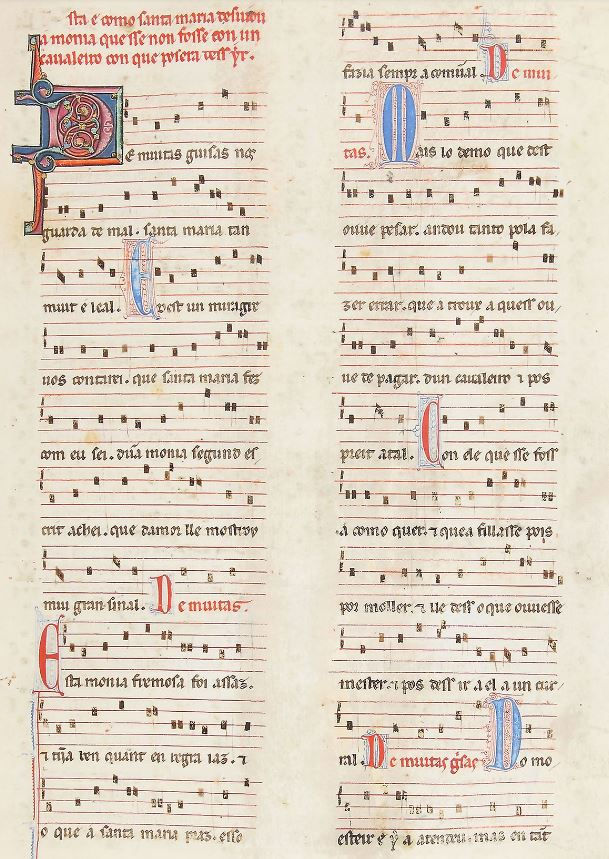 sta é como santa maria desuiou
a monia que sse non fosse con un
caualeiro con que posera dess yr.
De muitas guisas nos
guarda de mal. santa maria tan
muit é leal. E dest un miragre
uos contarei. que santa maria fez
com eu sei. dũa monia segund es/
crit achei. que damor lle mostrou
mui gran sinal. De muitas.
Esta monia fremosa foi assaz.
⁊ tijna ben quãt en regla iaz. ⁊
o que a santa maria praz. esso
fazia sempr a comũal. De mui
tas. Mais lo demo que dest
ouue pesar. andou tanto pola fa/
zer errar. que a troux a quess ou/
ue de pagar. dun caualeiro ⁊ pos
preit atal. Con ele que sse foss
a como quer. ⁊ que a fillasse pois
por moller. ⁊ lle dess o que ouuesse
mester. ⁊ pos dess ir a el a un cur/
ral. De muitas g̃sas Do mo
esteir é ẏ a atendeu. mas en tãt